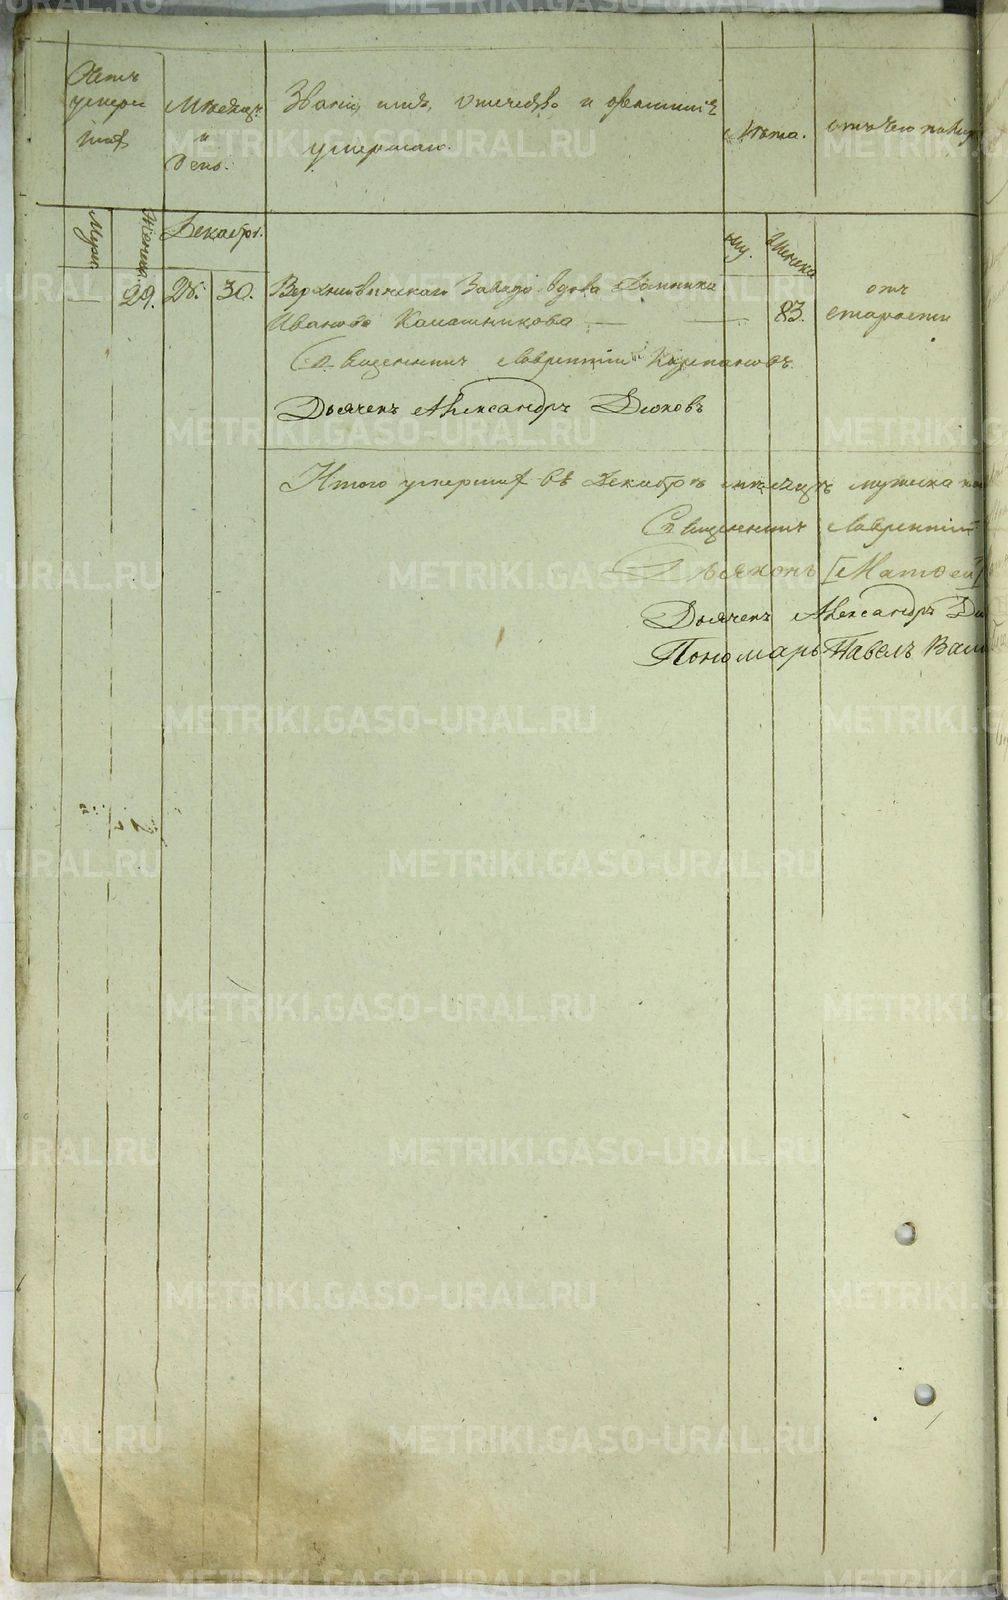 Счетъ
умерш
ихъ
Мѣсяцъ
и
День.
Званіе, имя, отчество и фамилія
умершаго.
Лѣта.
отъ чего по
Муж.
Женск.
Декабрь.
муж.
женска
— 29. 28. 30. Верхнейвинскаго Завода вдова Домника 83. отъ
Иванова Калашникова — — старости
Священникъ Лаврентій
Дьячекъ Александръ Дюковъ
Итого умершихъ въ Декабрѣ мѣсяцѣ мужеска
Священникъ Лаврентій
Дьяконъ [Матѳей]
Дьячекъ Александръ
Пономарь Павелъ
METRIKI.GASO-URAL.RU